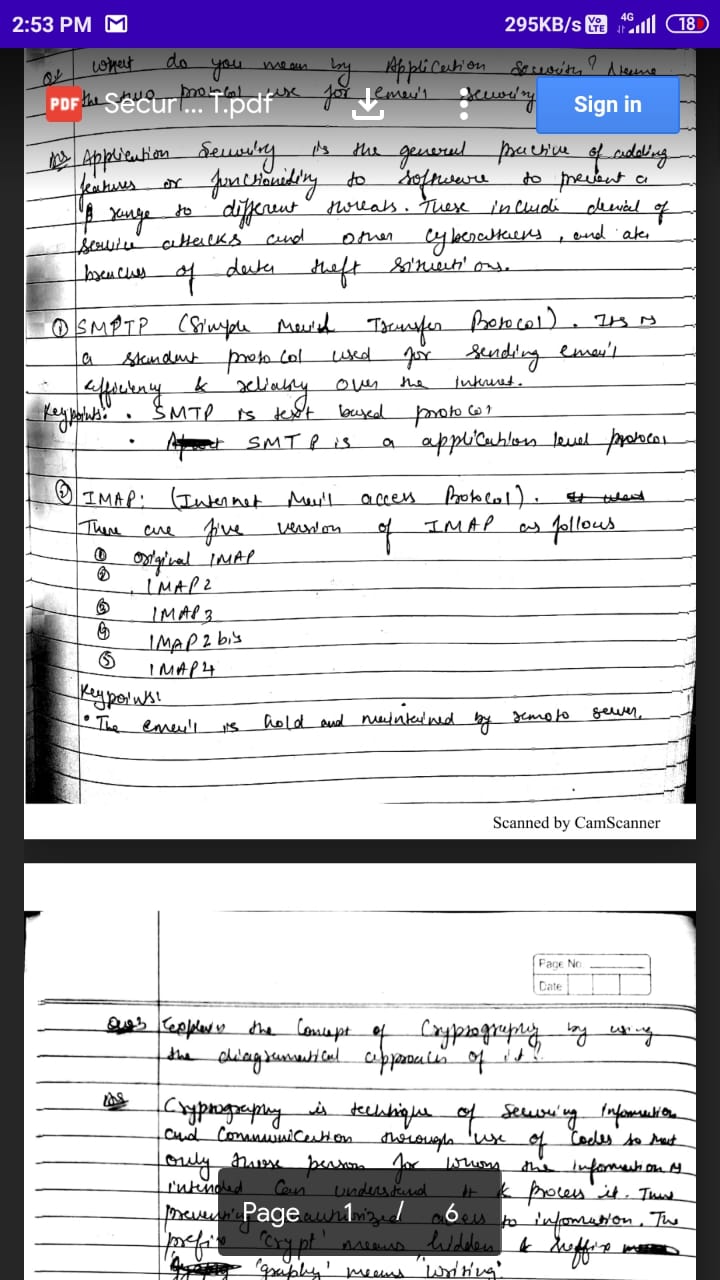 2:53 PM 295KB/s Vo LTE 4G 18
Q1 What do you mean by Application Security? Name
the two protocol use for email security
PDF Securi... T.pdf Sign in
Ans Application Security is the general practive of adding
features or functioneding to software to prevent a
range to different threats. These includi denial of
service attacks and other cyberattacks, and ater
breaches of data theft situations.
① SMPTP (Simple Mail Transfer Protocol). Its is
a standart protocol used for sending email
efficiency & reliably over the Internet.
Key points: • SMTP is text based protocol
• SMTP is a application level protocol
② IMAP: (Internet Mail access Protocol).
There are five version of IMAP as follows
① Original IMAP
② IMAP2
③ IMAP3
④ IMAP2bis
⑤ IMAP4
Key points:
• The email is hold and maintained by remote server.
Scanned by CamScanner
Page No.
Date
Ques Explain the Concept of Cryptography by using
the diagramatical approach of it?
Ans Cryptography is techtique of Securing Information
and Communication thorough use of Codes so that
only those person for whom the information is
intended Can understand it & process it. Thus
preventing access to information. The
prefix 'crypt' means hidden & suffix
'graphy' means 'writing'
Page 1 / 6